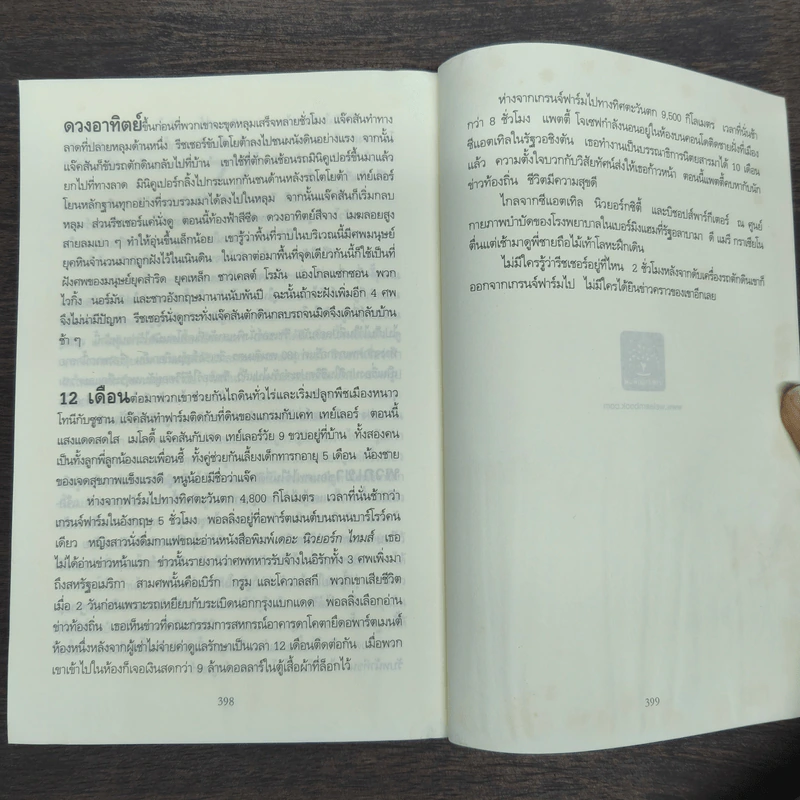 ดวงอาทิตย์ขึ้นก่อนที่พวกเขาจะขุดหลุมเสร็จหลายชั่วโมง แจ๊คสันทำทาง
ลาดที่ปลายหลุมด้านหนึ่ง รีชเชอร์ขับโตโยต้าลงไปชนผนังดินอย่างแรง จากนั้น
แจ๊คสันก็ขับรถตักดินกลับไปที่บ้าน เขาใช้ที่ตักดินช้อนรถมินิคูเปอร์ขึ้นมาแล้ว
ยกไปที่ทางลาด มินิคูเปอร์กลิ้งไปกระแทกกันชนด้านหลังรถโตโยต้า เทย์เลอร์
โยนหลักฐานทุกอย่างที่รวบรวมมาได้ลงไปในหลุม จากนั้นแจ๊คสันก็เริ่มกลบ
หลุม ส่วนรีชเชอร์แค่นั่งดู ตอนนี้ท้องฟ้าสีซีด ดวงอาทิตย์สีจาง เมฆลอยสูง
สายลมเบา ๆ ทำให้อุ่นขึ้นเล็กน้อย เขารู้ว่าพื้นที่ราบในบริเวณนี้มีศพมนุษย์
ยุคหินจำนวนมากถูกฝังไว้ในเนินดิน ในเวลาต่อมาพื้นที่จุดเดียวกันนี้ก็ใช้เป็นที่
ฝังศพของมนุษย์ยุคสำริด ยุคเหล็ก ชาวเคลต์ โรมัน แองโกลแซกซอน พวก
ไวกิ้ง นอร์มัน และชาวอังกฤษมานานนับพันปี ฉะนั้นถ้าจะฝังเพิ่มอีก 4 ศพ
จึงไม่น่ามีปัญหา รีชเชอร์นั่งดูกระทั่งแจ๊คสันตักดินกลบรถจนมิดจึงเดินกลับบ้าน
ช้า ๆ
12 เดือนต่อมาพวกเขาช่วยกันไถดินทั่วไร่และเริ่มปลูกพืชเมืองหนาว
โทนีกับซูซาน แจ๊คสันทำฟาร์มติดกับที่ดินของแกรมกับเคท เทย์เลอร์ ตอนนี้
แสงแดดสดใส เมโลดี้ แจ๊คสันกับเจด เทย์เลอร์วัย 9 ขวบอยู่ที่บ้าน ทั้งสองคน
เป็นทั้งลูกพี่ลูกน้องและเพื่อนซี้ ทั้งคู่ช่วยกันเลี้ยงเด็กทารกอายุ 5 เดือน น้องชาย
ของเจดสุขภาพแข็งแรงดี หนูน้อยมีชื่อว่าแจ๊ค
ห่างจากฟาร์มไปทางทิศตะวันตก 4,800 กิโลเมตร เวลาที่นั่นช้ากว่า
เกรนจ์ฟาร์มในอังกฤษ 5 ชั่วโมง พอลลิ่งอยู่ที่อพาร์ตเมนต์บนถนนบาร์โรว์คน
เดียว หญิงสาวนั่งดื่มกาแฟขณะอ่านหนังสือพิมพ์เดอะ นิวยอร์ก ไทมส์ เธอ
ไม่ได้อ่านข่าวหน้าแรก ข่าวนั้นรายงานว่าศพทหารรับจ้างในอิรักทั้ง 3 ศพเพิ่งมา
ถึงสหรัฐอเมริกา สามศพนั้นคือเบิร์ก กรูม และโควาลสกี พวกเขาเสียชีวิต
เมื่อ 2 วันก่อนเพราะรถเหยียบกับระเบิดนอกกรุงแบกแดด พอลลิ่งเลือกอ่าน
ข่าวท้องถิ่น เธอเห็นข่าวที่คณะกรรมการสหกรณ์อาคารดาโคตายึดอพาร์ตเมนต์
ห้องหนึ่งหลังจากผู้เช่าไม่จ่ายค่าดูแลรักษาเป็นเวลา 12 เดือนติดต่อกัน เมื่อพวก
เขาเข้าไปในห้องก็เจอเงินสดกว่า 9 ล้านดอลลาร์ในตู้เสื้อผ้าที่ล็อกไว้
398
ห่างจากเกรนจ์ฟาร์มไปทางทิศตะวันตก 9,500 กิโลเมตร เวลาที่นั่นช้า
กว่า 8 ชั่วโมง แพตตี้ โจเซฟกำลังนอนอยู่ในห้องบนคอนโดติดชายฝั่งที่เมือง
ซีแอตเทิลในรัฐวอชิงตัน เธอทำงานเป็นบรรณาธิการนิตยสารมาได้ 10 เดือน
แล้ว ความตั้งใจบวกกับวิสัยทัศน์ส่งให้เธอก้าวหน้า ตอนนี้แพตตี้คบหากับนัก
ข่าวท้องถิ่น ชีวิตมีความสุขดี
ไกลจากซีแอตเทิล นิวยอร์กซิตี้ และบิชอปส์พาร์กีเตอร์ ณ ศูนย์
กายภาพบำบัดของโรงพยาบาลในเบอร์มิงแฮมที่รัฐอลาบามา ดี แมรี กราเซียโน
ตื่นแต่เช้ามาดูพี่ชายถือไม้เท้าโลหะฝึกเดิน
ไม่มีใครรู้ว่ารีชเชอร์อยู่ที่ไหน 2 ชั่วโมงหลังจากดับเครื่องรถตักดินเขาก็
ออกจากเกรนจ์ฟาร์มไป ไม่มีใครได้ยินข่าวคราวของเขาอีกเลย
399